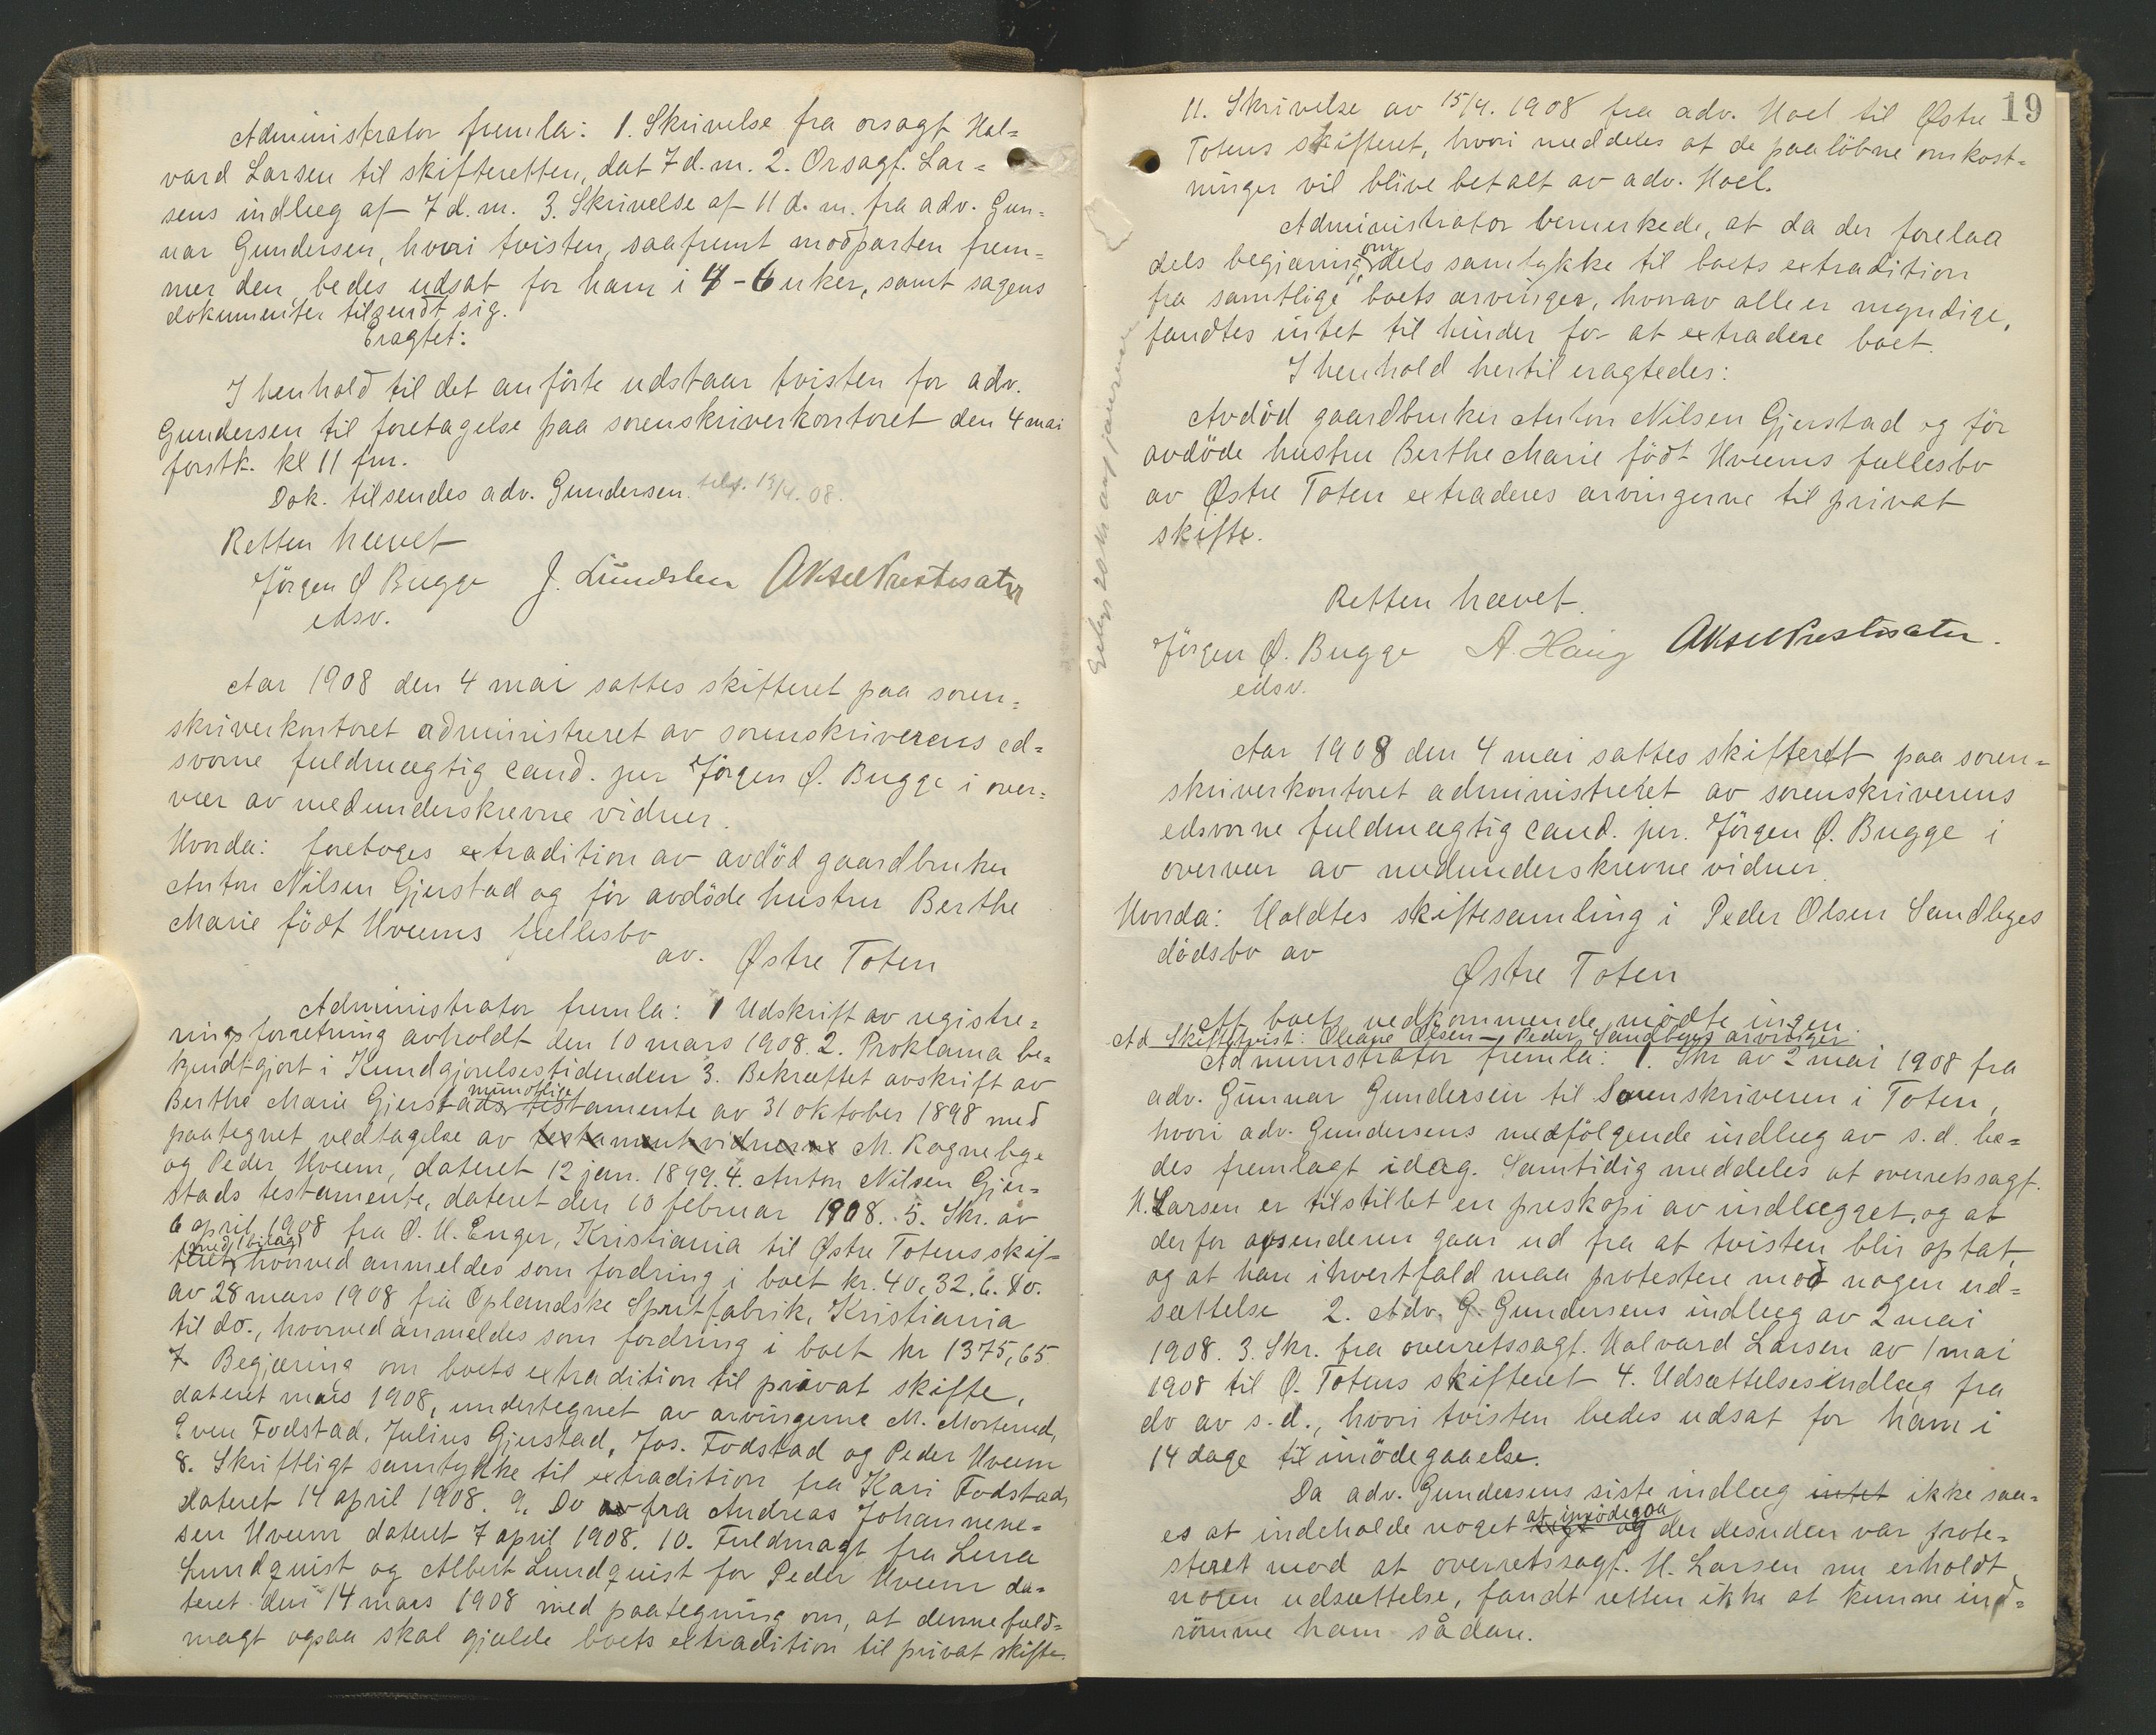 Administrator fremla: 1. Skrivelse fra orsagf. Hal=
vard Larsen til skifteretten, dat 7 d. m. 2. Orsagf. Lar=
sens indlæg af 7 d. m. 3. Skrivelse af 11 d. m. fra adv. Gun=
nar Gundersen, hvori tvisten, saafremt modparten frem=
mer den, bedes udsat for ham i 4-6 uker, samt sagens
dokumenter tilsendt sig.
Eragtet:
I henhold til det anförte udstaar tvisten for adv.
Gundersen til foretagelse paa sorenskriverkontoret den 4 mai
förstk. kl 11 fm.
Dok. tilsendes adv. Gundersen. 13/4. 08.
Retten hævet
Jörgen Ø Bugge J. Lundsten Aksel Prestesæter
edsv.
Aar 1908 den 4 mai sattes skifteret paa soren=
skriverkontoret administreret av sorenskriverens ed=
svorne fuldmægtig cand. jur Jörgen Ø. Bugge i over=
vær av medunderskrevne vidner.
Hvorda: foretoges extradition av avdöd gaardbruker
Anton Nilsen Gjerstad og för avdöde hustru Berthe
Marie födt Hveems fællesbo
av. Østre Toten
Administrator fremla: 1 Udskrift av registre=
ringsforretning avholdt den 10 mars 1908. 2. Proklama be=
kjendtgjort i Kundgjörelsestidenden 3. Bekræftet avskrift av
Berthe Marie Gjerstads mundtlige testamente av 31 oktober 1898 med
paategnet vedtagelse av testamentvidnerne M. Rognebye
og Peder Hveem, dateret 12 jan. 1899. 4. Anton Nilsen Gjer=
stads testamente, dateret den 10 februar 1908. 5. Skr. av
6 april 1908 fra O. H. Enger, Kristiania til Østre Totens skif-
teret (med 1 bilag) hvorved anmeldes som fordring i boet kr. 40,32. 6. Do.
av 28 mars 1908 fra Oplandske Spritfabrik, Kristiania
til do., hvorved anmeldes som fordring i boet kr 1375,65
7. Begjæring om boets extradition til privat skifte,
dateret mars 1908, undertegnet av arvingerne M. Morterud,
Even Fodstad, Julius Gjerstad, Jos. Fodstad og Peder Hveem
8. Skriftligt samtykke til extradition fra Kari Fodstad,
dateret 14 april 1908. 9. Do av fra Andreas Johannene=
sen Hveem dateret 7 april 1908. 10. Fuldmagt fra Lena
Lundquist og Albert Lundquist for Peder Hveem da=
teret den 14 mars 1908 med paategning om, at denne fuld=
magt ogsaa skal gjælde boets extradition til privat skifte.
19
11. Skrivelse av 15/4. 1908 fra adv. Hoel til Østre
Totens skifteret, hvori meddeles at de paalöbne omkost=
ninger vil blive betalt av adv. Hoel.
Administrator bemerkede, at da der forelaa
dels begjæring om dels samtykke til boets extradition
fra samtlige boets arvinger, hvorav alle er myndige,
fandtes intet til hinder for at extradere boet.
I henhold hertil eragtedes:
Avdöd gaardbruker Anton Nilsen Gjerstad og för
avdöde hustru Berthe Marie födt Hveems fællesbo
av Østre Toten extraderes arvingerne til privat
skifte.
Retten hævet.
Jörgen Ø. Bugge A. Haug Aksel Prestesæter.
edsv.
Aar 1908 den 4 mai sattes skifteret paa soren=
skriverkontoret administreret av sorenskriverens
edsvorne fuldmægtig cand. jur. Jörgen Ø. Bugge i
overvær av medunderskrevne vidner.
Hvorda: Holdtes skiftesamling i Peder Olsen Sandbyes
dödsbo av
Østre Toten
At boets vedkommende mödte ingen.
Ad Skiftetvist: Oleane Olsen - Peder Sandbyes arvinger
Administrator fremla: 1. Skr av 2 mai 1908 fra
adv. Gunnar Gundersen til Sorenskriveren i Toten,
hvori adv. Gundersens medfölgende indlæg av s. d. be=
des fremlagt idag. Samtidig meddeles at overretssagf.
H. Larsen er tilstillet en preskopi av indlægget, og at
derfor avsenderen gaar ud fra at tvisten blir optat,
og at han ihvertfald maa protestere mod nogen ud=
sættelse 2. Adv. G. Gundersens indlæg av 2 mai
1908. 3. Skr. fra overretssagf. Halvard Larsen av 1 mai
1908 til Ø. Totens skifteret 4. Udsættelsesindlæg fra
do av s. d., hvori tvisten bedes udsat for ham i
14 dage til imödegaaelse.
Da adv. Gundersens siste indlæg intet ikke saa=
es at indeholde noget at imödegaa og der desuden var prote=
steret mod at overretssagf. H. Larsen nu erholdt
nogen udsættelse, fandt retten ikke at kunne ind=
römme ham sådan.